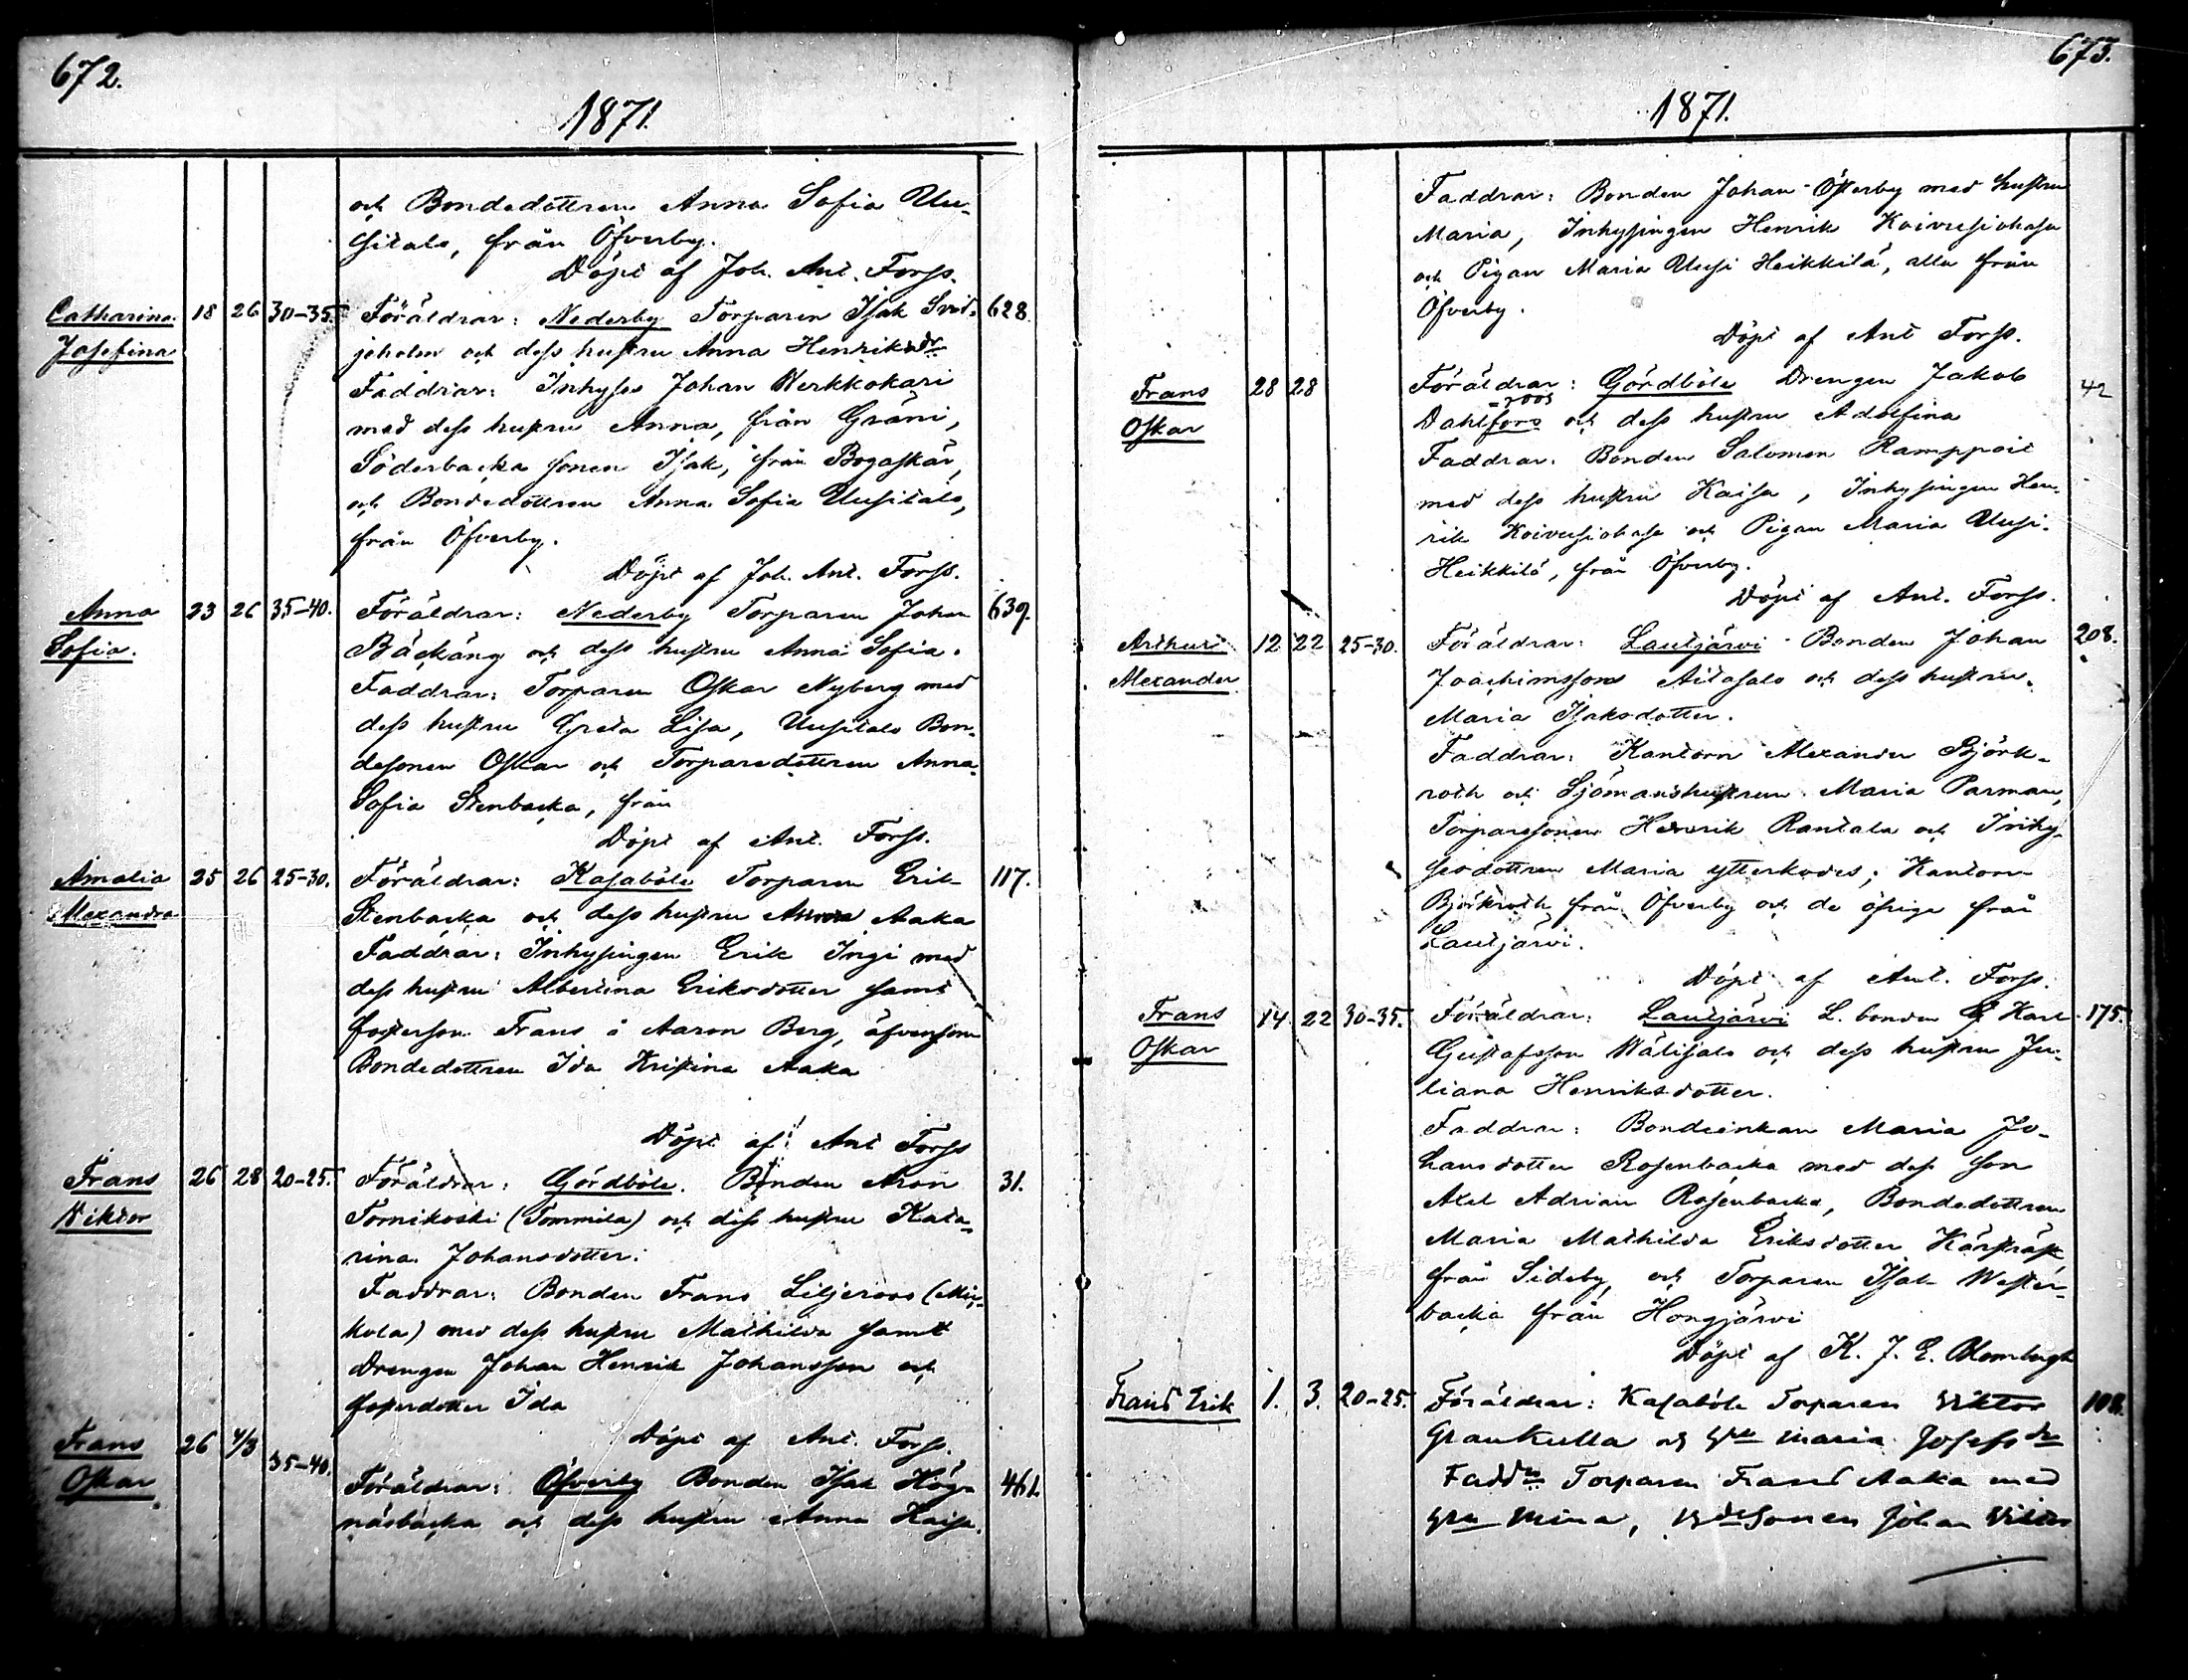 672.
1871.
och Bondedottren Anna Sofia Uu-
sitalo, från Öfverby.
Döpt af Joh. Ant. Forss.
Catharina Josefina 18 26 30-35. Föräldrar: Nederby Torparen Isak Svid- 628.
jeholm och dess hustru Anna Henriksdr
Faddrar: Inhyses Johan Werkkokari
med dess hustru Anna, från Gräni,
Söderbacka sonen Isak, från Bogaskär,
och Bondedottren Anna Sofia Uusitalo,
från Öfverby.
Döpt af Joh. Ant. Forss.
Anna Sofia. 23 26 35-40. Föräldrar: Nederby Torparen Johan 639.
Bäckäng och dess hustru Anna Sofia.
Faddrar: Torparen Oskar Nyberg med
dess hustru Greta Lisa, Uusitalo Bon-
desonen Oskar och Torparedottren Anna
Sofia Stenbacka, från
Döpt af Ant. Forss.
Amalia Alexandra 25 26 25-30. Föräldrar: Kasaböle Torparen Erik 117.
Stenbacka och dess hustru Anna Aaka
Faddrar: Inhysingen Erik Ingi med
dess hustru Albertina Eriksdotter samt
fosterson Frans å Aaron Berg, äfvensom
Bondedottren Ida Kristina Aaka
Döpt af Ant Forss
Frans Viktor 26 28 20-25. Föräldrar: Gördböle. Bonden Aron 31.
Tornikoski (Tommila) och dess hustru Kata-
rina Johansdotter.
Faddrar: Bonden Frans Liljeroos (Mic-
kola) med dess hustru Mathilda samt
Drengen Johan Henrik Johansson och
fosterdotter Ida
Döpt af Ant. Forss.
Frans Oskar 26 4/3 35-40. Föräldrar: Öfverby Bonden Isak Hög- 461.
näsbacka och dess hustru Anna Kaisa.
673.
1871.
Faddrar: Bonden Johan Österby med hustru
Maria, Inhysingen Henrik Koivusiohasa
och Pigan Maria Uusi Heikkilä, alla från
Öfverby.
Döpt af Ant Forss.
Frans Oskar 28 28 Föräldrar: Gördböle Drengen Jakob 42
=roos
Dahlfors och dess hustru Adolfina
Faddrar: Bonden Salomon Ramppoit
med dess hustru Kaisa, Inhysingen Hen-
rik Koivusiohasa och Pigan Maria Uusi-
Heikkilä, från Öfverby.
Döpt af Ant. Forss.
Arthur Alexander 12 22 25-30. Föräldrar: Lautjärvi Bonden Johan 208.
Joachimsson Aitasalo och dess hustru
Maria Isaksdotter.
Faddrar: Kantorn Alexander Björk-
roth och Sjömanshustrun Maria Parman,
Torparesonen Henrik Rantala och Inhy-
sesdottren Maria Ytterkodes; Kantorn
Björkroth från Öfverby och de öfrige från
Lautjärvi.
Döpt af Ant. Forss.
Frans Oskar 14 22 30-35. Föräldrar: Lautjärvi L. bonden Karl 175.
Gustafsson Wälisalo och dess hustru Ju-
liana Henriksdotter.
Faddrar: Bondeenkan Maria Jo-
hansdotter Rosenbacka med dess son
Axel Adrian Rosenbacka, Bondedottren
Maria Mathilda Eriksdotter
från Sideby, och Torparen Isak Wester-
backa från Hongjärvi
Döpt af K. J. E. Blombergh
Frans Erik 1. 3. 20-25. Föräldrar: Kasaböle Torparen Viktor 108.
Grankulla och Maria Josefsdr
Faddr Torparen Frans Aaka med
Mina, BdeSonen Johan Viktor